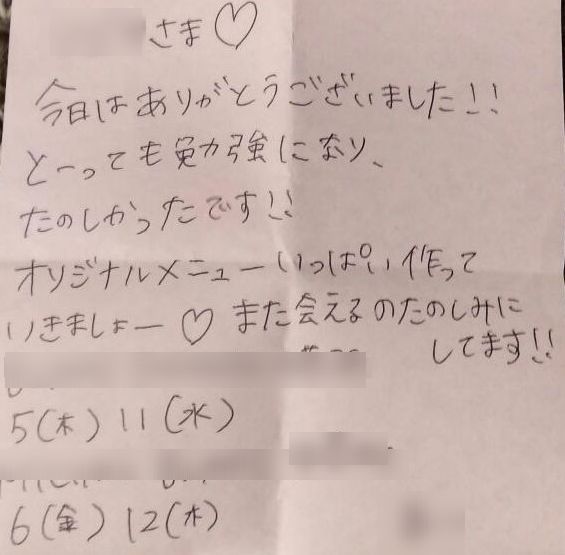 さま♡
今日はありがとうございました!!
とーっても勉強になり、
たのしかったです!!
オリジナルメニューいっぱい作って
いきましょー♡ また会えるのたのしみに
してます!!
5(木) 11(水)
6(金) 12(木)